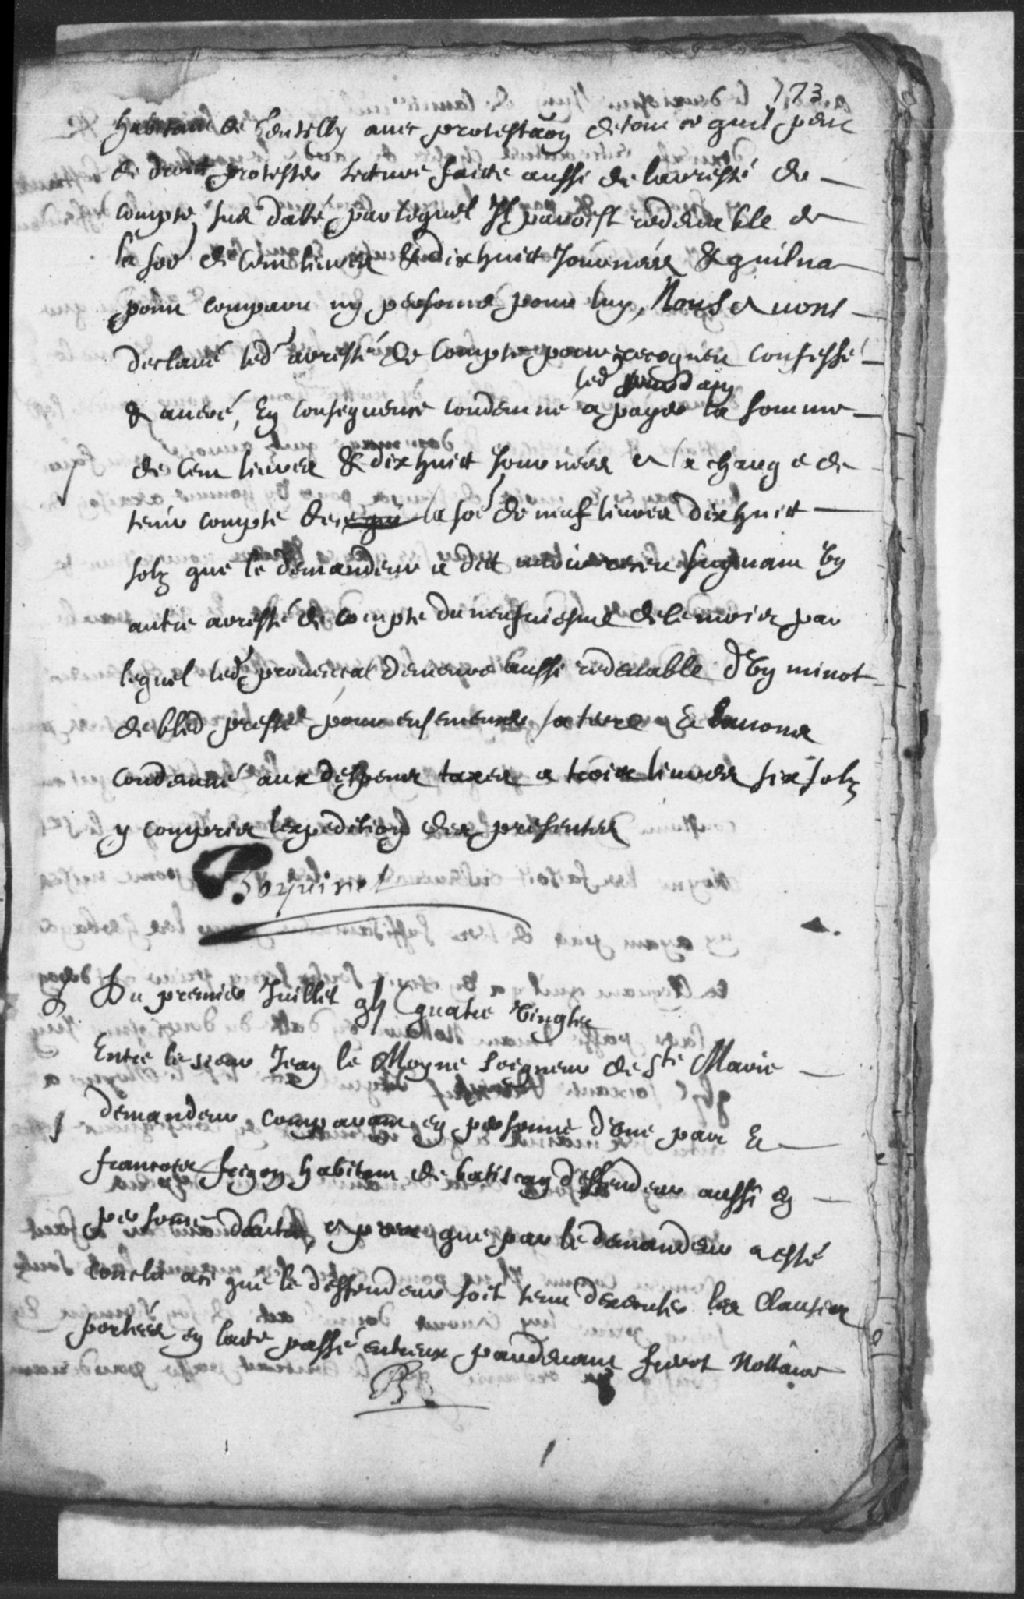 173
habitant de Gentilly avec protestaõn de tout ce quil peut
de droit protester lecture faite aussi de larresté de
compte sus datté par lequel Il paroist redevable de
la soẽ de Cent livres & dixhuict Journées & quil na
point comparu ny personne pour luy, Nous avons
declaré led arresté de compte pour recogneu confessé
& averé, En consequence condemné a payer la somme
de Cent livres & dixhuict Journées a la charge de
tenir compte de la soẽ de neuf livres dixhuict
solz que le demandeur a dit avoir receu suyvant Un
autre arresté de compte du neufviesme par
lequel led provencal demeure aussi redevable d'Un minot
de bled presté pour ensemencer sa terre & Lavons
condemné aux despens taxes a trois livres six solz
y compris lexpedition des presentes
Boyvinet
Du premier Juillet gbjc quatre Vingts
Entre le sieur Jean le Moyne seigneur de Ste Marie
demandeur comparant en personne d'une part Et
francois frigon habitant de batiscan deffendeur aussi en
personne dautre, a que par le demandeur a esté
conclu que le deffendeur soit tenu dexecuter les Clauses
portées en lacte passé entreux pardevant Notaire